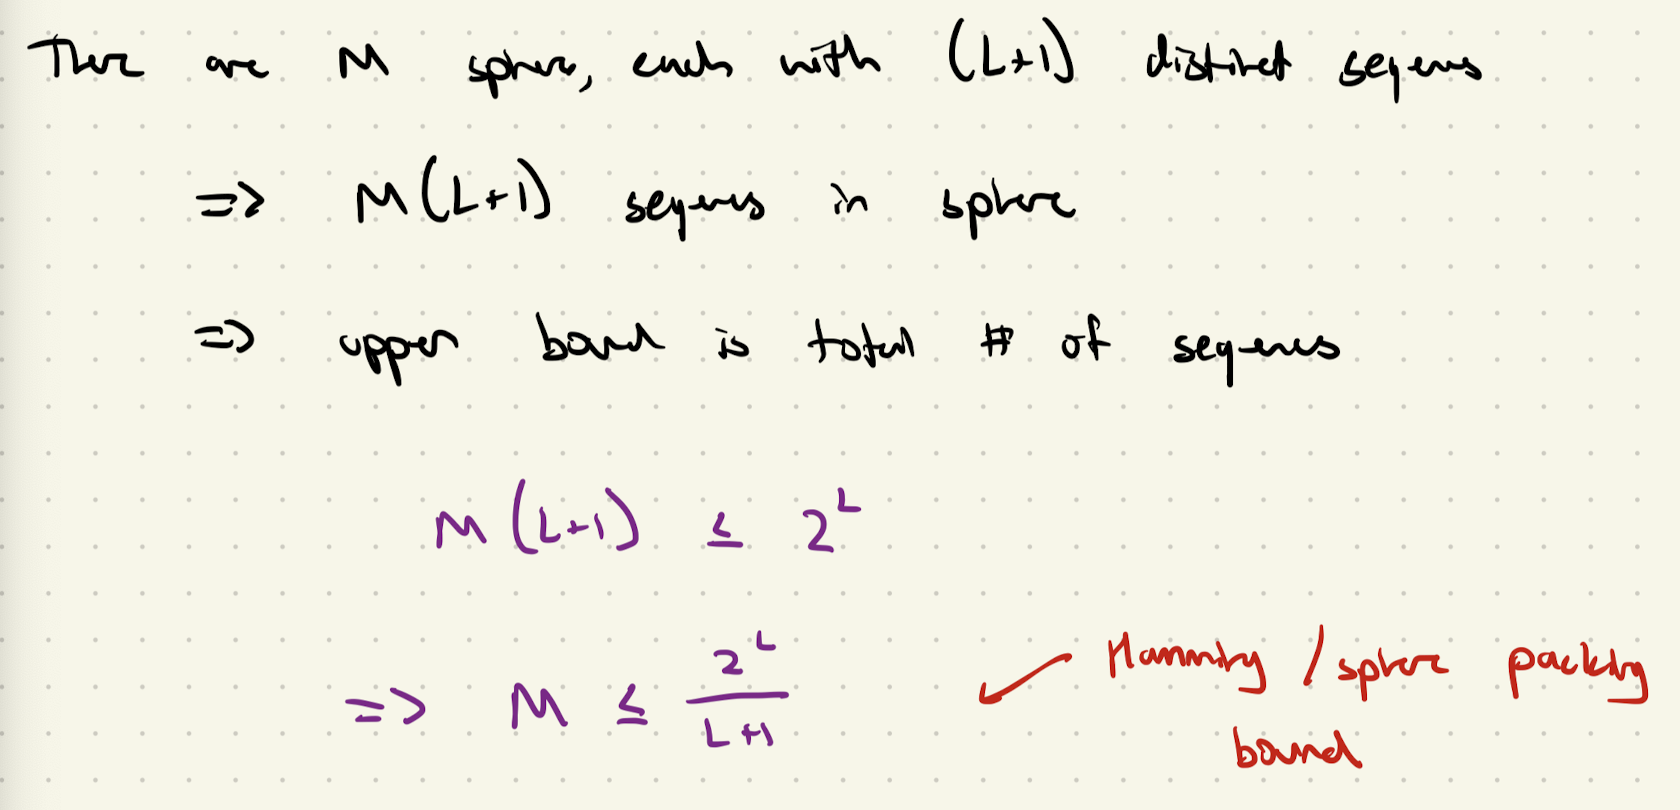 There are M sphere, each with (L+1) distinct sequences
=> M(L+1) sequences in sphere
=> upper bound is total # of sequences
M(L+1) ≤ 2^L
=> M ≤ 2^L / (L+1)
Hamming / sphere packing
bound